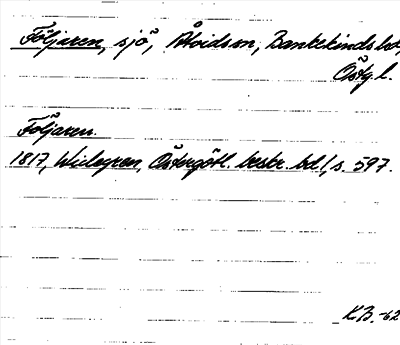 Följaren, sjö, Åtvids sn, Bankekinds hd,
Östg. l.
Följaren.
1817, Widegren, Östergötl. beskr. bd 1, s. 597.
K.B. -62